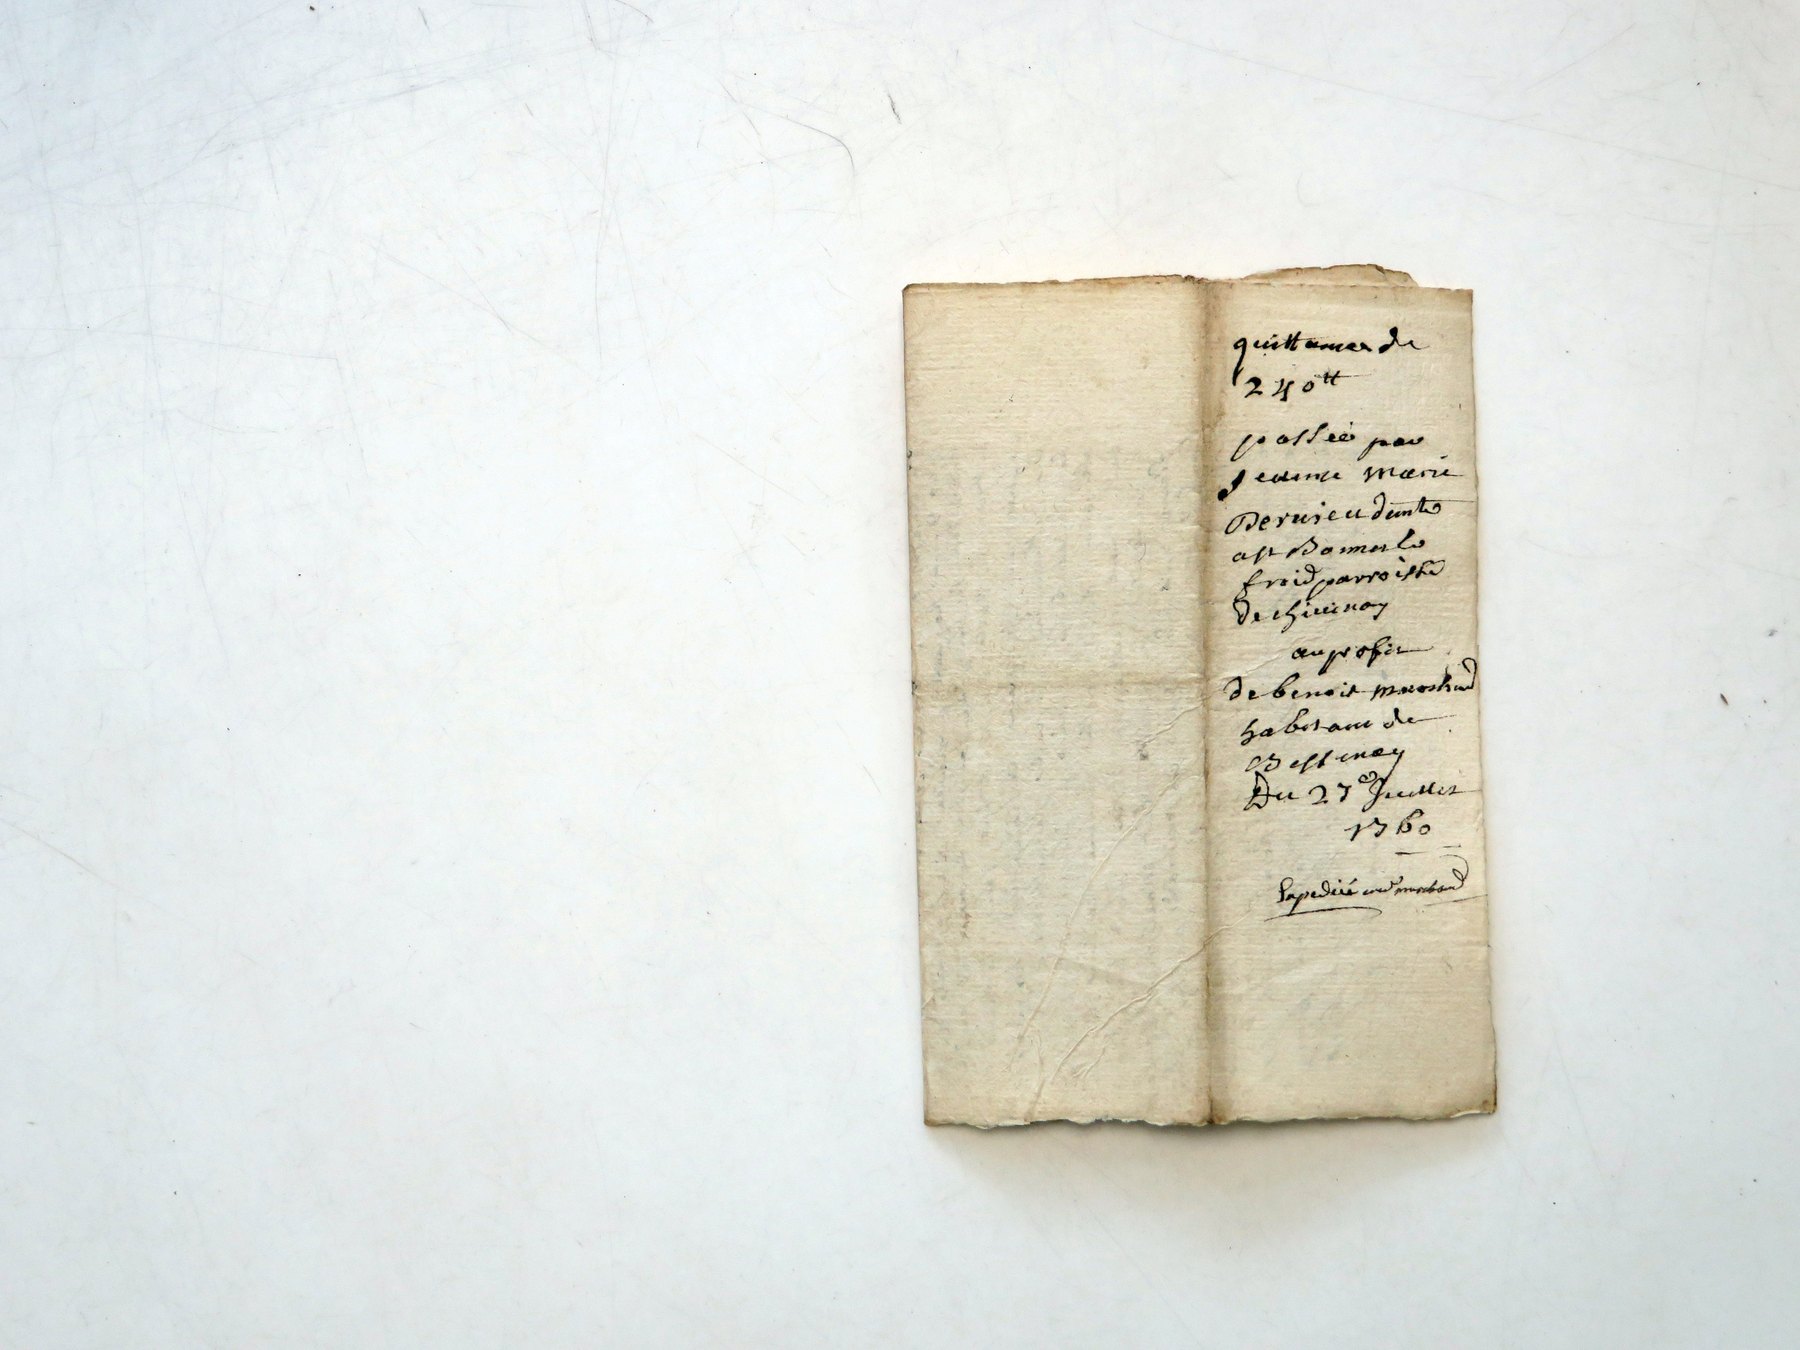 quittance de
240tt
passée par
Jeanne Marie
Dervieu
a st Bonnet le
froid parroisse
de chevinay
au profit
de benoit marchand
habitant de
Bessenay
Du 27e Juillet
1760
Expedié marchand